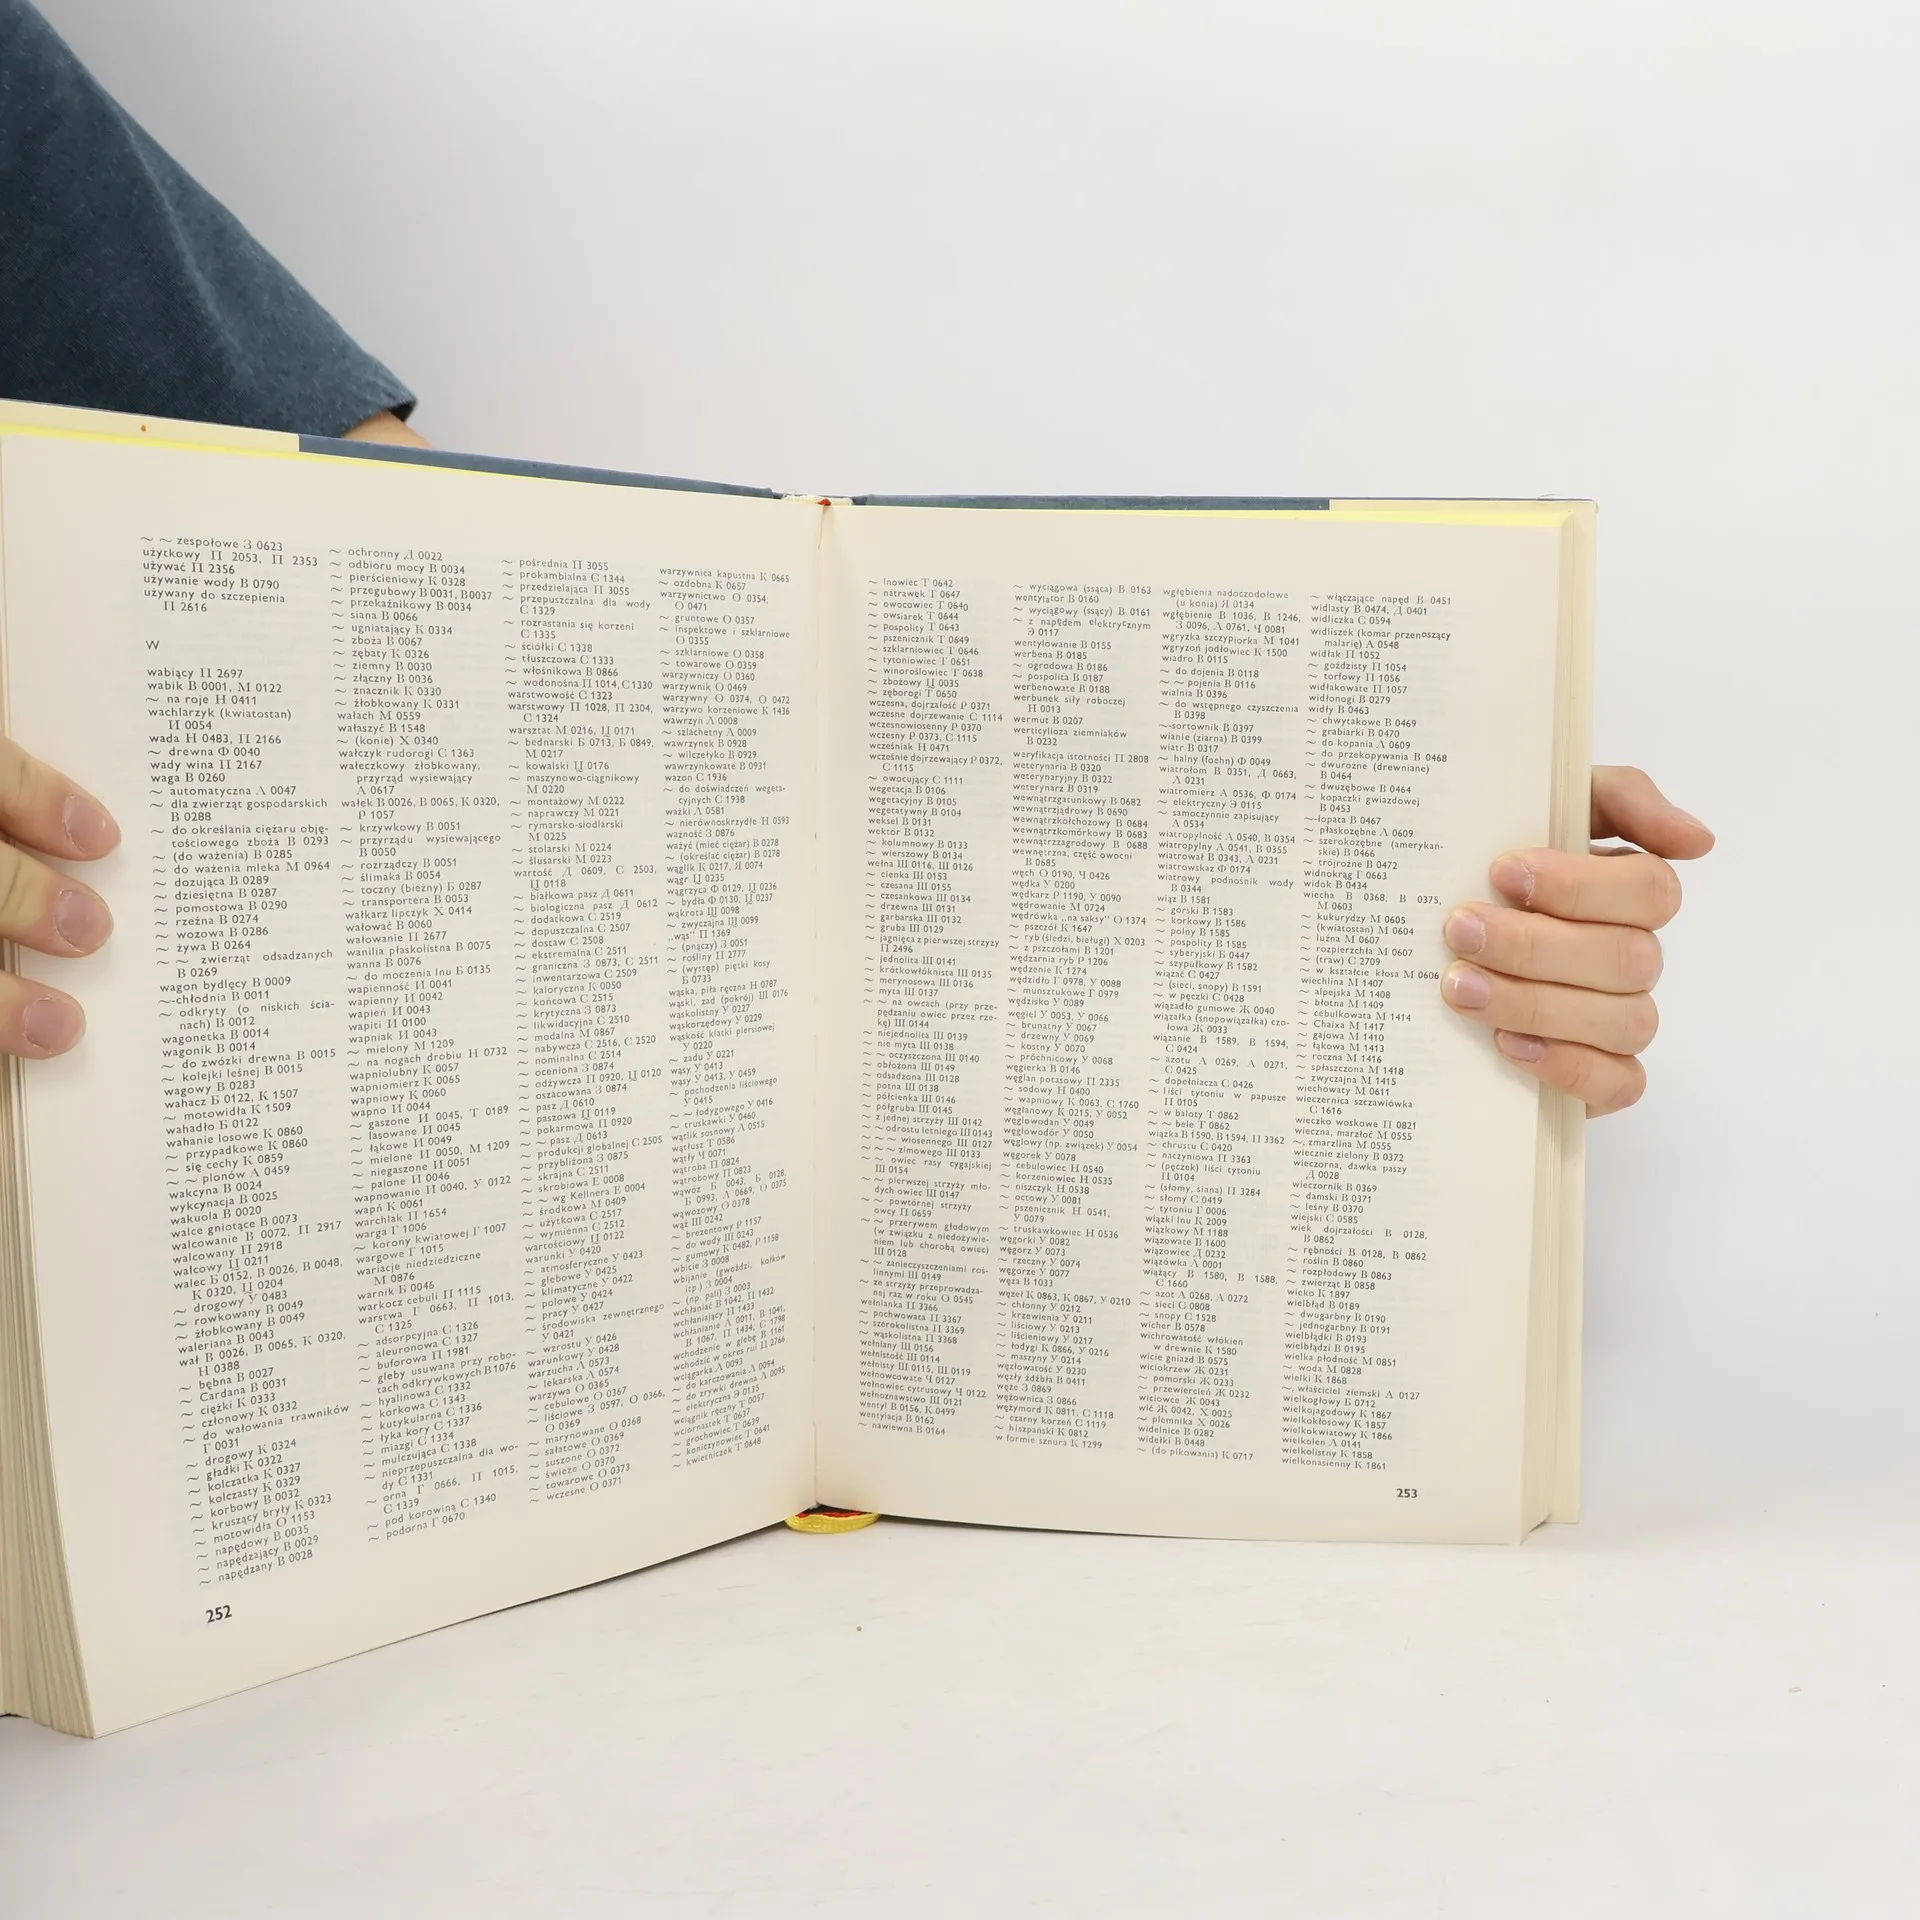 ~ ~ zespołowe З 0623
użytkowy П 2053, П 2353
używać П 2356
używanie wody В 0790
używany do szczepienia
П 2616
W
wabiący П 2697
wabik В 0001, М 0122
~ na roje Н 0411
wachlarzyk (kwiatostan)
И 0054
wada Н 0483, П 2166
~ drewna Ф 0040
wady wina П 2167
waga В 0260
~ automatyczna А 0047
~ dla zwierząt gospodarskich
В 0288
~ do określania ciężaru obję-
tościowego zboża В 0293
~ (do ważenia) В 0285
~ do ważenia mleka М 0964
~ dozująca В 0289
~ dziesiętna В 0287
~ pomostowa В 0290
~ rzeźna В 0274
~ wozowa В 0286
~ żywa В 0264
~ ~ zwierząt odsadzanych
В 0269
wagon bydlęcy В 0009
~-chłodnia В 0011
~ odkryty (o niskich ścia-
nach) В 0012
wagonetka В 0014
wagonik В 0014
~ do zwózki drewna В 0015
~ kolejki leśnej В 0015
wagowy В 0283
wahacz Б 0122, К 1507
~ motowidła К 1509
wahadło Б 0122
wahanie losowe К 0860
~ przypadkowe К 0860
~ się cechy К 0859
~ ~ plonów А 0459
wakcyna В 0024
wykcynacja В 0025
wakuola В 0020
walce gniotące В 0073
walcowanie В 0072, П 2917
walcowany П 2918
walcowy Ц 0211
walec Б 0152, В 0026, В 0048,
К 0320, Ц 0204
~ drogowy У 0483
~ rowkowany В 0049
~ żłobkowany В 0049
waleriana В 0043
wał В 0026, В 0065, К 0320,
Н 0388
~ bębna В 0027
~ Cardana В 0031
~ ciężki К 0333
~ członowy К 0332
~ do wałowania trawników
Г 0031
~ drogowy К 0324
~ gładki К 0322
~ kolczatka К 0327
~ kolczasty К 0329
~ korbowy В 0032
~ kruszący bryły К 0323
~ motowidła О 1153
~ napędowy В 0035
~ napędzający В 0029
~ napędzany В 0028
252
~ ochronny Д 0022
~ odbioru mocy В 0034
~ pierścieniowy К 0328
~ przegubowy В 0031, В0037
~ przekaźnikowy В 0034
~ siana В 0066
~ ugniatający К 0334
~ zboża В 0067
~ zębaty К 0326
~ ziemny В 0030
~ złączny В 0036
~ znacznik К 0330
~ żłobkowany К 0331
wałach М 0559
wałaszyć В 1548
~ (konie) Х 0340
wałczyk rudorogi С 1363
wałeczkowy żłobkowany,
przyrząd wysiewający
А 0617
wałek В 0026, В 0065, К 0320,
Р 1057
~ krzywkowy В 0051
~ przyrządu wysiewającego
В 0050
~ rozrządczy В 0051
~ ślimaka В 0054
~ toczny (bieżny) Б 0287
~ transportera В 0053
wałkarz lipczyk Х 0414
wałować В 0060
wałowanie П 2677
wanilia płaskolistna В 0075
wanna В 0076
~ do moczenia lnu Б 0135
wapienność И 0041
wapienny И 0042
wapień И 0043
wapiti И 0100
wapniak И 0043
~ mielony М 1209
~ na nogach drobiu Н 0732
wapniolubny К 0057
wapniomierz К 0065
wapniowy К 0060
wapno И 0044
~ gaszone И 0045, Т 0189
~ lasowane И 0045
~ łąkowe И 0049
~ mielone И 0050, М 1209
~ niegaszone И 0051
~ palone И 0046
wapnowanie И 0040, У 0122
wapń К 0061
warchlak П 1654
warga Г 1006
~ korony kwiatowej Г 1007
wargowe Г 1015
wariacje niedziedziczne
М 0876
warnik Б 0046
warkocz cebuli П 1115
warstwa Г 0663, П 1013,
С 1325
~ adsorpcyjna С 1326
~ aleuronowa С 1327
~ buforowa П 1981
~ gleby usuwana przy robo-
tach odkrywkowych В1076
~ hyalinowa С 1332
~ korkowa С 1343
~ kutykularna С 1336
~ łyka kory С 1337
~ miazgi С 1334
~ mulczująca С 1338
~ nieprzepuszczalna dla wo-
dy С 1331
~ orna Г 0666, П 1015,
С 1339
~ pod korowiną С 1340
~ podorna Г 0670
~ pośrednia П 3055
~ prokambialna С 1344
~ przedzielająca П 3055
~ przepuszczalna dla wody
С 1329
~ rozrastania się korzeni
С 1335
~ ściółki С 1338
~ tłuszczowa С 1333
~ włośnikowa В 0866
~ wodonośna П 1014, С 1330
warstwowość С 1323
warstwowy П 1028, П 2304,
С 1324
warsztat М 0216, Ц 0171
~ bednarski Б 0713, Б 0849,
М 0217
~ kowalski Ц 0176
~ maszynowo-ciągnikowy
М 0220
~ montażowy М 0222
~ naprawczy М 0221
~ rymarsko-siodlarski
М 0225
~ stolarski М 0224
~ ślusarski М 0223
wartość Д 0609, С 2503,
Ц 0118
~ białkowa pasz Д 0611
~ biologiczna pasz Д 0612
~ dodatkowa С 2519
~ dopuszczalna С 2507
~ dostaw С 2508
~ ekstremalna С 2511
~ graniczna З 0873, С 2511
~ inwentarzowa С 2509
~ kaloryczna К 0050
~ końcowa С 2515
~ krytyczna З 0873
~ likwidacyjna С 2510
~ modalna М 0867
~ nabywcza С 2516, С 2520
~ nominalna С 2514
~ oceniona З 0874
~ odżywcza П 0920, Ц 0120
~ oszacowana З 0874
~ pasz Д 0610
~ paszowa Ц 0119
~ pokarmowa П 0920
~ ~ pasz Д 0613
~ produkcji globalnej С 2505
~ przybliżona З 0875
~ skrajna С 2511
~ skrobiowa Е 0008
~ ~ wg Kellnera Е 0004
~ środkowa М 0409
~ użytkowa С 2517
~ wymienna С 2512
wartościowy Ц 0122
warunki У 0420
~ atmosferyczne У 0423
~ glebowe У 0425
~ klimatyczne У 0422
~ polowe У 0424
~ pracy У 0427
~ środowiska zewnętrznego
У 0421
~ wzrostu У 0426
warunkowy У 0428
warzucha Л 0573
~ lekarska Л 0574
warzywa О 0365
~ cebulowe О 0367
~ liściowe З 0597, О 0366,
О 0369
~ marynowane О 0368
~ sałatowe О 0369
~ suszone О 0372
~ świeże О 0370
~ towarowe О 0373
~ wczesne О 0371
warzywnica kapustna К 0665
~ ozdobna К 0657
warzywnictwo О 0354,
О 0471
~ gruntowe О 0357
~ inspektowe i szklarniowe
О 0355
~ szklarniowe О 0358
~ towarowe О 0359
warzywniczy О 0360
warzywnik О 0469
warzywny О 0374, О 0472
warzywo korzeniowe К 1436
wawrzyn Л 0008
~ szlachetny Л 0009
wawrzynek В 0928
~ wilczełyko В 0929
wawrzynkowate В 0931
wazon С 1936
~ do doświadczeń wegeta-
cyjnych С 1938
ważki Л 0581
~ nierównoskrzydłe Н 0593
ważność З 0876
ważyć (mieć ciężar) В 0278
~ (określać ciężar) В 0278
wąglik К 0217, Я 0074
wągr Ц 0235
wągrzyca Ф 0129, Ц 0236
~ bydła Ф 0130, Ц 0237
wąkrota Щ 0098
~ zwyczajna Щ 0099
„wąs" П 1369
~ (pnączy) З 0051
~ rośliny П 2777
~ (występ) piętki kosy
Б 0733
wąska, piła ręczna Н 0787
wąski, zad (pokrój) Ш 0176
wąskolistny У 0227
wąskorzędowy У 0229
wąskość klatki piersiowej
У 0220
~ zadu У 0221
wąsy У 0413
wąsy У 0413, У 0459
~ pochodzenia liściowego
У 0415
~ ~ łodygowego У 0416
~ truskawki У 0460
wątlik sosnowy Л 0515
wątłusz Т 0586
wątły Ч 0071
wątroba П 0824
wątrobowy П 0823
wąwóz Б 0043, Б 0128,
Б 0993, Л 0669, О 0375
wąwozowy О 0378
wąż Ш 0242
~ brezentowy Р 1157
~ do wody Ш 0243
~ gumowy К 0482, Р 1158
wbicie З 0008
wbijanie (gwoździ, kołków
itp.) З 0004
~ (np. pali) З 0003
wchłaniać В 1042, П 1432
wchłaniający П 1433
wchłanianie А 0011, В 1041,
В 1067, П 1434, С 1798
wchodzenie w glebę В 1161
wchodzić w okres rui П 2766
wciągarka Л 0093
~ do karczowania Л 0094
~ do zrywki drewna Л 0095
~ elektryczna Э 0135
wciągnik ręczny Т 0057
wciornastek Т 0637
~ grochowiec Т 0639
~ koniczynowiec Т 0641
~ kwietniczek Т 0648
~ lnowiec Т 0642
~ natrawek Т 0647
~ owocowiec Т 0640
~ owsiarek Т 0644
~ pospolity Т 0643
~ pszenicznik Т 0649
~ szklarniowiec Т 0646
~ tytoniowiec Т 0651
~ winoroślowiec Т 0638
~ zbożowy Ц 0035
~ zęborogi Т 0650
wczesna, dojrzałość Р 0371
wczesne dojrzewanie С 1114
wczesnowiosenny Р 0370
wczesny Р 0373, С 1115
wcześniak Н 0471
wcześnie dojrzewający Р 0372,
С 1115
~ owocujący С 1111
wegetacja В 0106
wegetacyjny В 0105
wegetatywny В 0104
weksel В 0131
wektor В 0132
~ kolumnowy В 0133
~ wierszowy В 0134
wełna Ш 0116, Ш 0126
~ cienka Ш 0153
~ czesana Ш 0155
~ czesankowa Ш 0134
~ drzewna Ш 0131
~ garbarska Ш 0132
~ gruba Ш 0129
~ jagnięca z pierwszej strzyży
П 2496
~ jednolita Ш 0141
~ krótkowłóknista Ш 0135
~ merynosowa Ш 0136
~ myta Ш 0137
~ ~ na owcach (przy prze-
pędzaniu owiec przez rze-
kę) Ш 0144
~ niejednolita Ш 0139
~ nie myta Ш 0138
~ ~ oczyszczona Ш 0140
~ obłożona Ш 0149
~ odsadzona Ш 0128
~ potna Ш 0138
~ półcienka Ш 0146
~ półgruba Ш 0145
~ z jednej strzyży Ш 0142
~ ~ odrostu letniego Ш 0143
~ ~ ~ wiosennego Ш 0127
~ ~ ~ zimowego Ш 0133
~ ~ owiec rasy cygajskiej
Ш 0154
~ ~ pierwszej strzyży mło-
dych owiec Ш 0147
~ ~ powtórnej strzyży
owcy П 0659
~ ~ przerywem głodowym
(w związku z niedożywie-
niem lub chorobą owiec)
Ш 0128
~ ~ zanieczyszczeniami roś-
linnymi Ш 0149
~ ze strzyży przeprowadza-
nej raz w roku О 0545
wełnianka П 3366
~ pochwowata П 3367
~ szerokolistna П 3369
~ wąskolistna П 3368
wełniany Ш 0156
wełnistość Ш 0114
wełnisty Ш 0115, Ш 0119
wełnowcowate Ч 0127
wełnowiec cytrusowy Ч 0122
wełnoznawstwo Ш 0121
wentyl В 0156, К 0499
wentylacja В 0162
~ nawiewna В 0164
~ wyciągowa (ssąca) В 0163
wentylator В 0160
~ wyciągowy (ssący) В 0161
~ z napędem elektrycznym
Э 0117
wentylowanie В 0155
werbena В 0185
~ ogrodowa В 0186
~ pospolita В 0187
werbenowate В 0188
werbunek siły roboczej
Н 0013
wermut В 0207
werticylioza ziemniaków
В 0232
weryfikacja istotności П 2808
weterynaria В 0320
weterynaryjny В 0322
weterynarz В 0319
wewnątrzgatunkowy В 0682
wewnątrzjądrowy В 0690
wewnątrzkołchozowy В 0684
wewnątrzkomórkowy В 0683
wewnątrzzagrodowy В 0688
wewnętrzna, część owocni
В 0685
węch О 0190, Ч 0426
wędka У 0200
wędkarz Р 1190, У 0090
wędrowanie М 0724
wędrówka „na saksy" О 1374
~ pszczół К 1647
~ ryb (śledzi, bieługi) Х 0203
~ z pszczołami В 1201
wędzarnia ryb Р 1206
wędzenie К 1274
wędzidło Г 0978, У 0088
~ munsztukowe Г 0979
wędzisko У 0089
węgiel У 0053, У 0066
~ brunatny У 0067
~ drzewny У 0069
~ kostny У 0070
~ próchnicowy У 0068
węgierka В 0146
węglan potasowy П 2335
~ sodowy Н 0400
~ wapniowy К 0063, С 1760
węglanowy К 0215, У 0052
węglowodan У 0049
węglowodór У 0050
węglowy (np. związek) У 0054
węgorek У 0078
~ cebulowiec Н 0540
~ korzeniowiec Н 0535
~ niszczyk Н 0538
~ octowy У 0081
~ pszenicznik Н 0541,
У 0079
~ truskawkowiec Н 0536
węgorki У 0082
węgorz У 0073
~ rzeczny У 0074
węgorze У 0077
węza В 1033
węzeł К 0863, К 0867, У 0210
~ chłonny У 0212
~ krzewienia У 0211
~ liściowy У 0213
~ liścieniowy У 0217
~ łodygi К 0866, У 0216
~ maszyny У 0214
węzłowatość У 0230
węzły źdźbła В 0411
węże З 0869
wężownica З 0866
wężymord К 0811, С 1118
~ czarny korzeń С 1119
~ hiszpański К 0812
w formie sznura К 1299
wgłębienia nadoczodołowe
(u konia) Я 0134
wgłębienie В 1036, В 1246,
З 0096, Л 0761, Ч 0081
wgryzka szczypiorka М 1041
wgryzoń jodłowiec К 1500
wiadro В 0115
~ do dojenia В 0118
~ ~ pojenia В 0116
wialnia В 0396
~ do wstępnego czyszczenia
В 0398
~-sortownik В 0397
wianie (ziarna) В 0399
wiatr В 0317
~ halny (foehn) Ф 0049
wiatrołom В 0351, Д 0663,
Л 0231
wiatromierz А 0536, Ф 0174
~ elektryczny Э 0115
~ samoczynnie zapisujący
А 0534
wiatropylność А 0540, В 0354
wiatropylny А 0541, В 0355
wiatrował В 0343, Л 0231
wiatrowskaz Ф 0174
wiatrowy podnośnik wody
В 0344
wiąz В 1581
~ górski В 1583
~ korkowy В 1586
~ polny В 1585
~ pospolity В 1585
~ syberyjski Б 0447
~ szypułkowy В 1582
wiązać С 0427
~ (sieci, snopy) В 1591
~ w pęczki С 0428
wiązadło gumowe Ж 0040
wiązałka (snopowiązałka) czo-
łowa Ж 0033
wiązanie В 1589, В 1594,
С 0424
~ azotu А 0269, А 0271,
С 0425
~ dopełniacza С 0426
~ liści tytoniu w papusze
П 0105
~ w baloty Т 0862
~ ~ bele Т 0862
wiązka В 1590, В 1594, П 3362
~ chrustu С 0420
~ naczyniowa П 3363
~ (pęczek) liści tytoniu
П 0104
~ (słomy, siana) П 3284
~ słomy С 0419
~ tytoniu Г 0006
wiązki lnu К 2009
wiązkowy М 1188
wiązowate В 1600
wiązowiec Д 0232
wiązówka Л 0001
wiążący В 1580, В 1588,
С 1660
~ azot А 0268, А 0272
~ sieci С 0808
~ snopy С 1528
wicher В 0578
wichrowatość włókien
w drewnie К 1580
wicie gniazd В 0575
wiciokrzew Ж 0231
~ pomorski Ж 0233
~ przewiercień Ж 0232
wiciowce Ж 0043
wić Ж 0042, Х 0025
~ plemnika Х 0026
widelnice В 0282
widełki В 0448
~ (do pikowania) К 0717
~ włączające napęd В 0451
widlasty В 0474, Д 0401
widliczka С 0594
widliszek (komar przenoszący
malarię) А 0548
widłak П 1052
~ goździsty П 1054
~ torfowy П 1056
widłakowate П 1057
widłonogi В 0279
widły В 0463
~ chwytakowe В 0469
~ grabiarki В 0470
~ do kopania Л 0609
~ do przekopywania В 0468
~ dwurożne (drewniane)
В 0464
~ dwuzębowe В 0464
~ kopaczki gwiazdowej
В 0453
~-łopata В 0467
~ płaskozębne Л 0609
~ szerokozębne (amerykań-
skie) В 0466
~ trójrożne В 0472
widnokrąg Г 0663
widok В 0434
wiecha В 0368, В 0375,
М 0603
~ kukurydzy М 0605
~ (kwiatostan) М 0604
~ luźna М 0607
~ rozpierzchła М 0607
~ (traw) С 2709
~ w kształcie kłosa М 0606
wiechlina М 1407
~ alpejska М 1408
~ błotna М 1409
~ cebulkowata М 1414
~ Chaixa М 1417
~ gajowa М 1410
~ łąkowa М 1413
~ roczna М 1416
~ spłaszczona М 1418
~ zwyczajna М 1415
wiechowaty М 0611
wieczernica szczawiówka
С 1616
wieczko woskowe П 0821
wieczna, marzłoć М 0555
~, zmarzlina М 0555
wiecznie zielony В 0372
wieczorna, dawka paszy
Д 0028
wieczornik В 0369
~ damski В 0371
~ leśny В 0370
wiejski С 0585
wiek dojrzałości В 0128,
В 0862
~ rębności В 0128, В 0862
~ roślin В 0860
~ rozpłodowy В 0863
~ zwierząt В 0858
wieko К 1897
wielbłąd В 0189
~ dwugarbny В 0190
~ jednogarbny В 0191
wielbłądki В 0193
wielbłądzi В 0195
wielka płodność М 0851
~ woda М 0828
wielki К 1868
~, właściciel ziemski Л 0127
wielkogłowy Б 0712
wielkojagodowy К 1867
wielkokłosowy К 1857
wielkokwiatowy К 1866
wielkolen Л 0141
wielkolistny К 1858
wielkonasienny К 1861
253